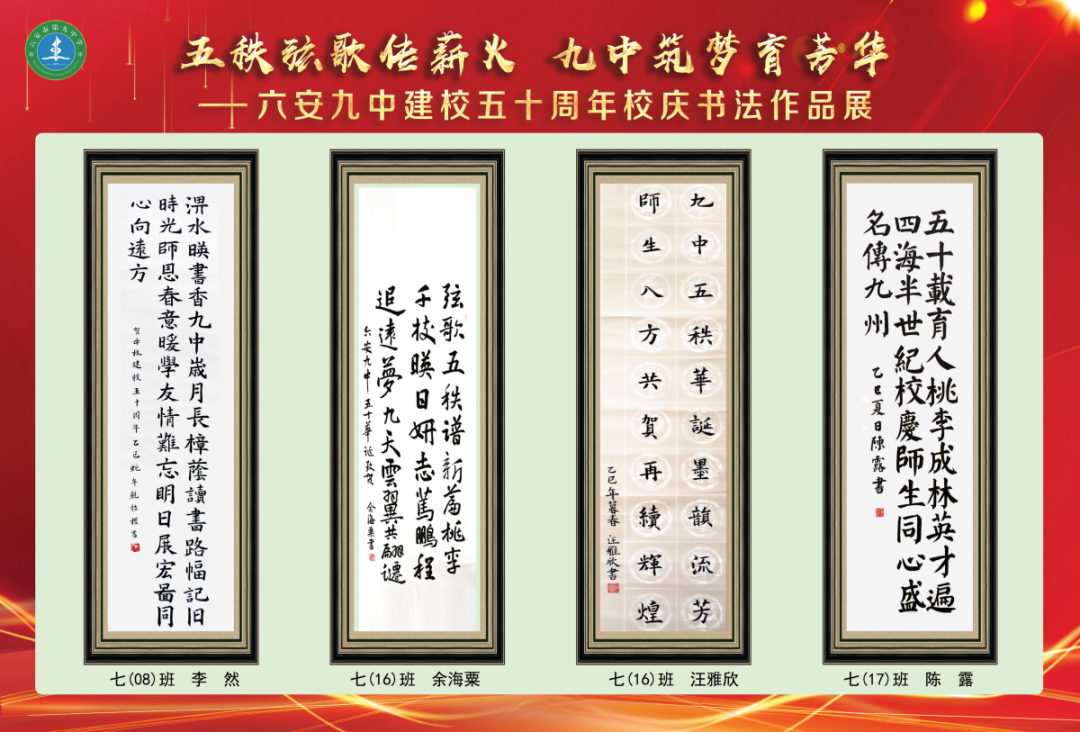 六安市第九中学
五秩弦歌传薪火 九中筑梦育芳华
——六安九中建校五十周年校庆书法作品展
淠水暎書香九中歲月長樟蔭讀書路幅記旧
時光師恩春意暖學友情難忘明日展宏啚同
心向遠方
贺母校建校五十周年乙巳蛇年
七(08)班 李 然
弦歌五秩谱新篇桃李
千枝暎日妍志篤鵬程
追遠夢九天雲翼共翩躚
六安九中五十華诞致贺 余海粟書
七(16)班 余海粟
九中五秩華誕墨韻流芳
師生八方共賀再續輝煌
乙巳年暮春 汪雅欣書
七(16)班 汪雅欣
五十載育人桃李成林英才遍
四海半世紀校慶師生同心盛
名傳九州
乙巳夏日陳露書
七(17)班 陈 露